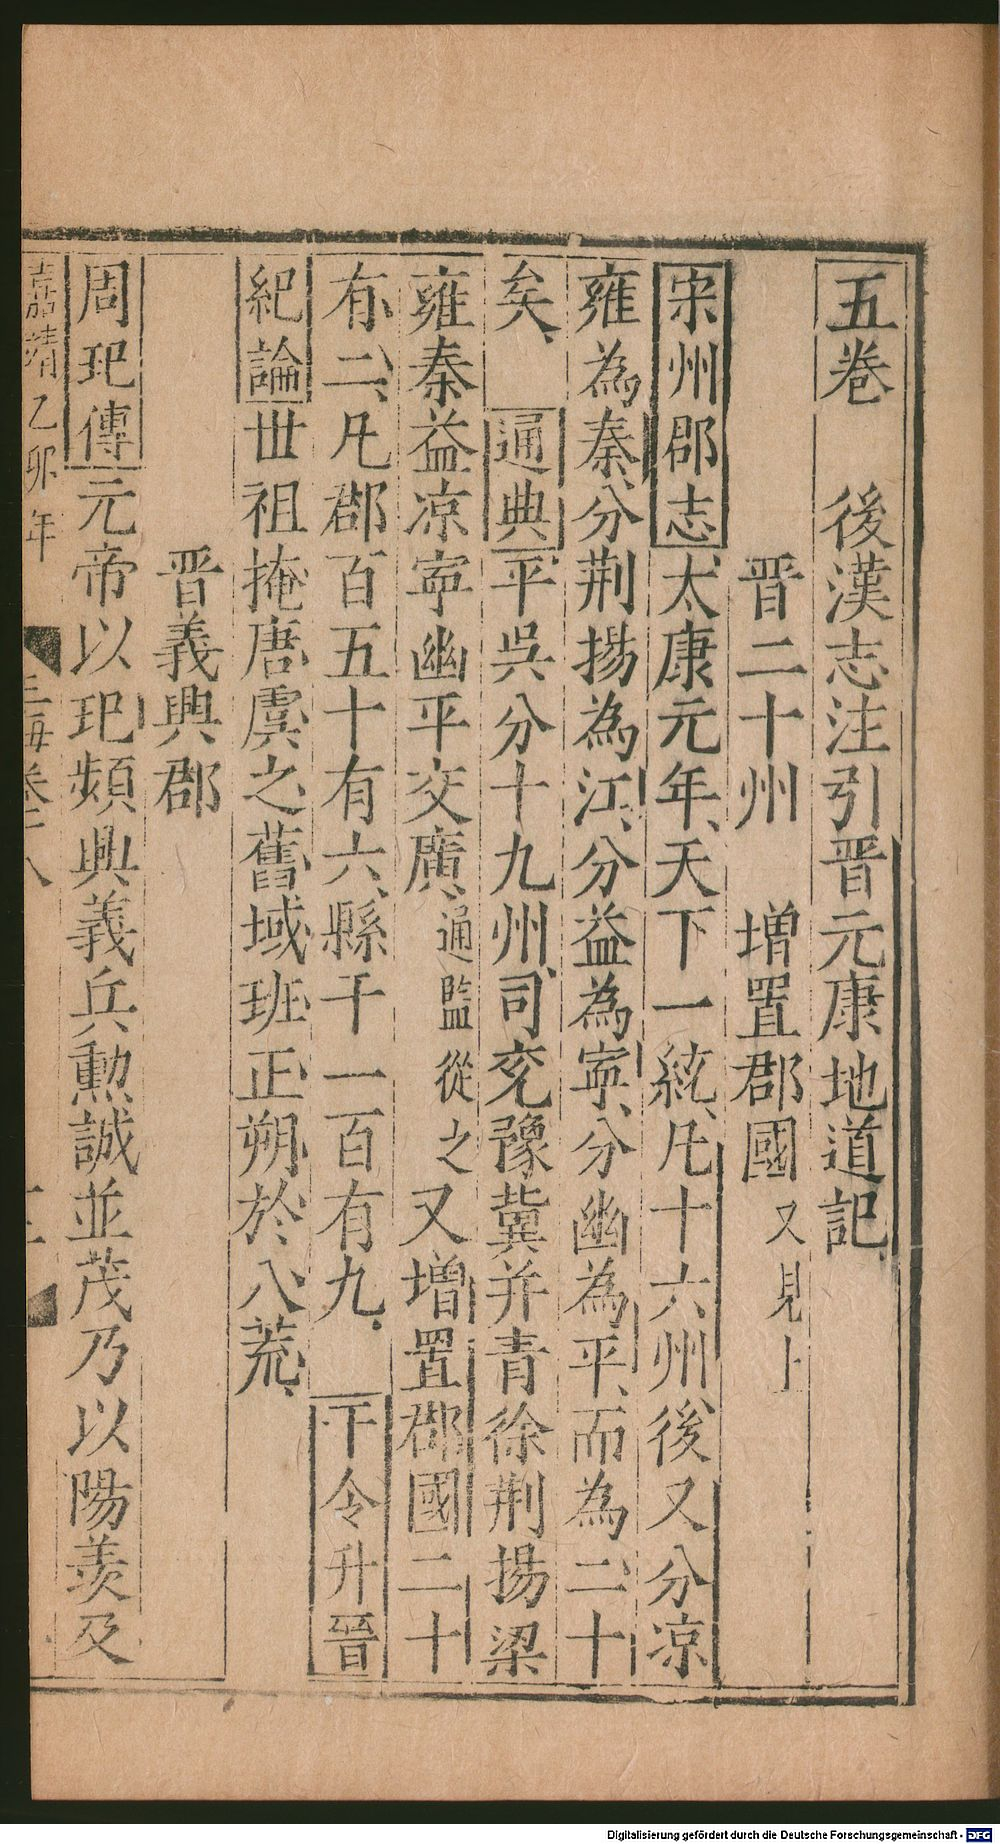 五卷　後漢志注引晋元康地道記
晋二十州　増置郡國又見上
宋州郡志太康元年天下一統凡十六州後又分凉
雍為秦分荆揚為江分益為寧分幽為平而為二十
矣　通典平吳分十九州司兖豫冀并青徐荆揚梁
雍秦益凉寧幽平交廣通監從之又増置郡國二十
有二凡郡百五十有六縣千一百有九　干令升晉
紀論丗祖掩唐虞之舊域班正朔於八荒
晋義興郡
周玘傳元帝以玘頻興義兵勲誠並茂乃以陽羨及
嘉靖乙卯年　玉海卷十八
Digitalisierung gefördert durch die Deutsche Forschungsgemeinschaft - DFG